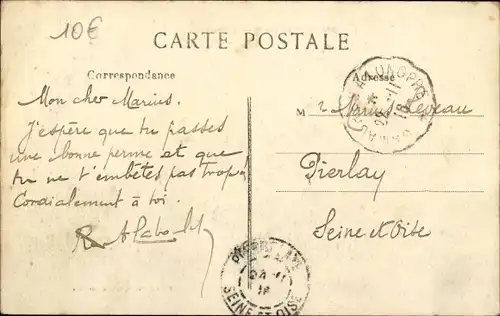 10€
CARTE POSTALE
Correspondance
Adresse
Mon cher Marius.
J'espère que tu passes
une bonne perme et que
tu ne t'embêtes pas trop!
Cordialement à toi.
M
Marius Leveau
Pierlay
Seine et Oise
SEINE ET OISE